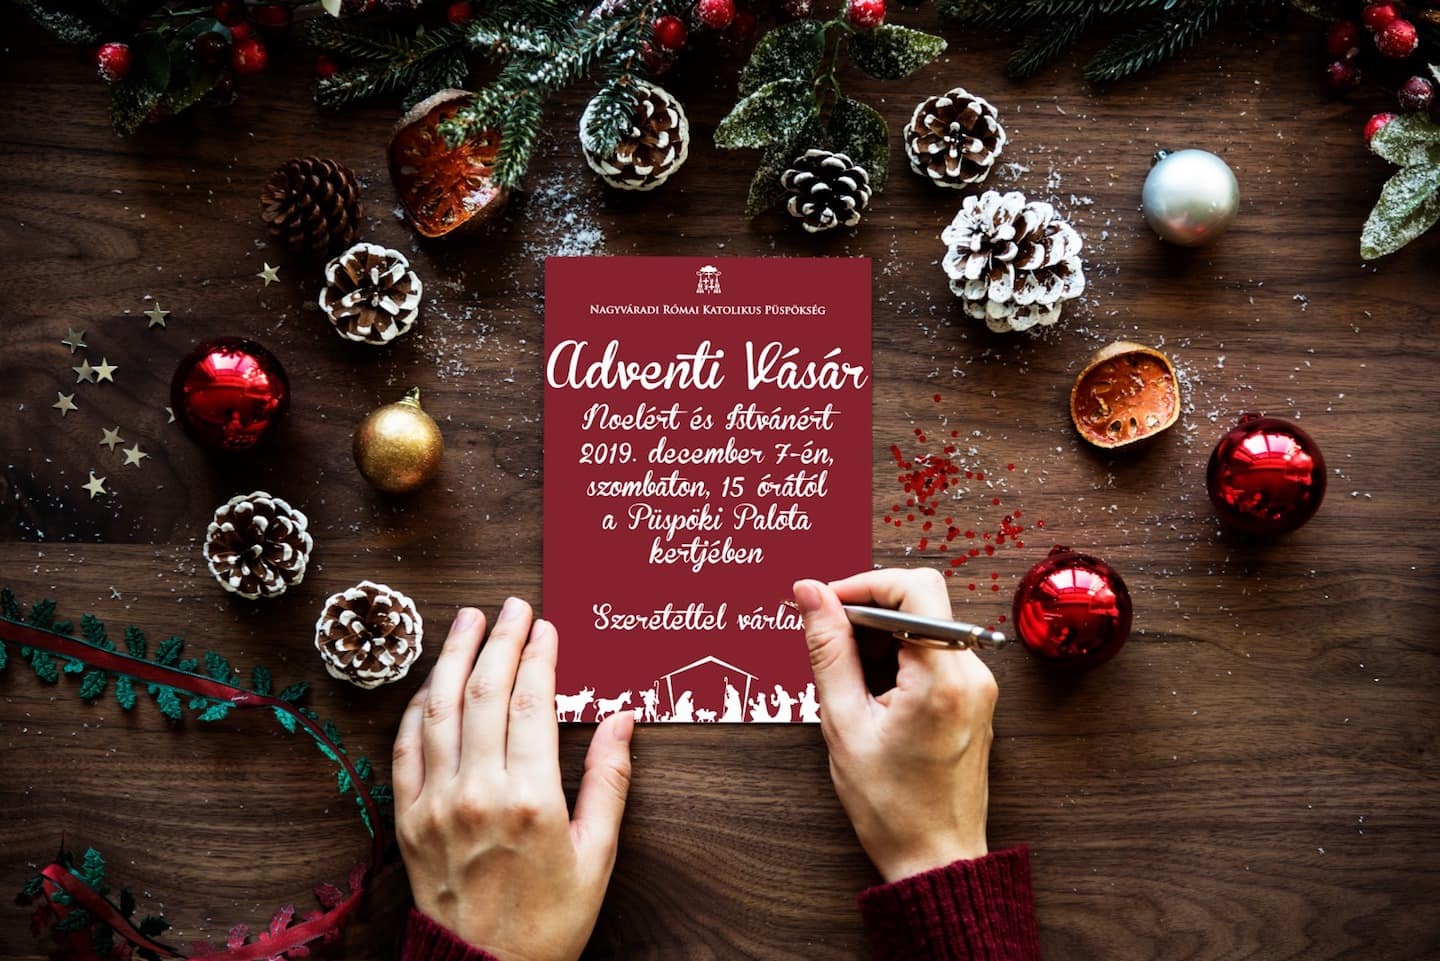 Nagyváradi Római Katolikus Püspökség
Adventi Vásár
Noelért és Istvánért
2019. december 7-én,
szombaton, 15 órától
a Püspöki Palota
kertjében
Szeretettel